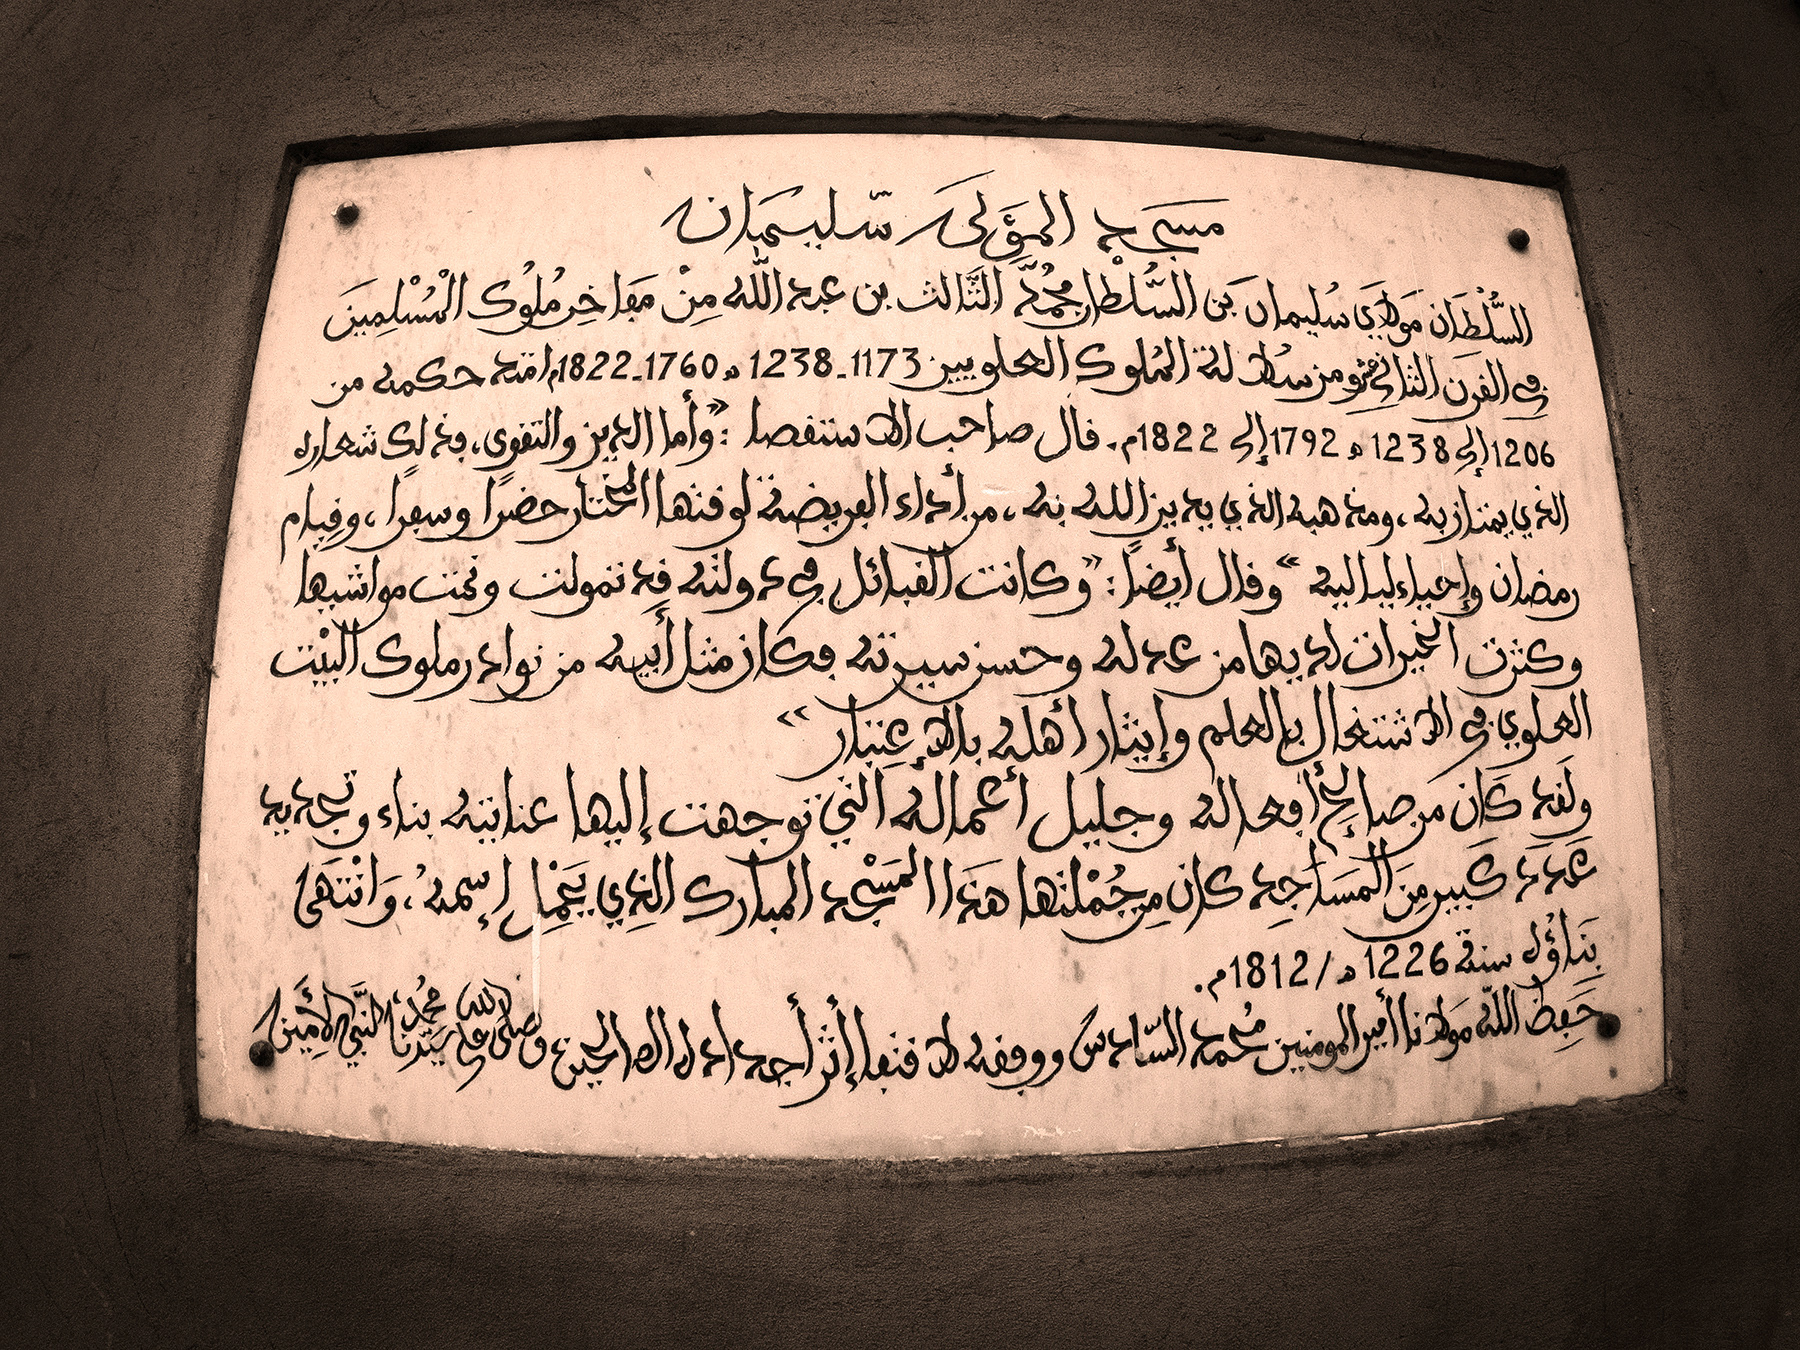 مسجد المَوْلَى سّليمان
السُّلْطَان مَولاَي سُليمان بَن السُّلطان محُمَّد الثَّالث بن عبد اللّه مِنْ مَفاخِر مُلُوك الْمُسْلِمِينَ
في القرن الثاني عشر ومن سُلالة المُلوك العلويين 1173ـ1238 ه 1760ـ1822م امتد حكمه من
1206 إلى 1238 ه 1792 إلى 1822م. قال صاحب الاستقصا : "وأما الدين والتقوى، فذلك شعاره
الذي يمتاز به، ومذهبه الذي يدين الله به، من أداء الفريضة لوقتها المختار حضرًا وسفرًا، وقيام
رمضان وإحياء لياليه" وقال أيضاً : "وكانت القبائل في دولته قد تمولت ونمت مواشيها
وكثرت الخيرات لديها من عدله وحسن سيرته فكان مثل أبيه من نوادر ملوك البيْت
العلوي في الاشتغال بالعلم وإيثار أهله بالاعِتبار"
ولَقد كَان من صالح أفعاله وجليل أعماله التي توجهت إليها عنايته بناء وتجديد
عَدَد كَبير مِنَ المسَاجِد كان مِن جُمْلتها هَذا المَسْجد المبارك الذِي يَحْمِل إسمهُ، وَانْتَهَى
بِنَاؤُه سنة 1226 ه / 1812م.
حَفِظَ اللّه مَولانا أمير المومنين محُمد السّادس ووفقه لاقتفاء إثر أجداده الصالحين وصلى الله على سَيّدنَا محُمد النَّبي الأَمين